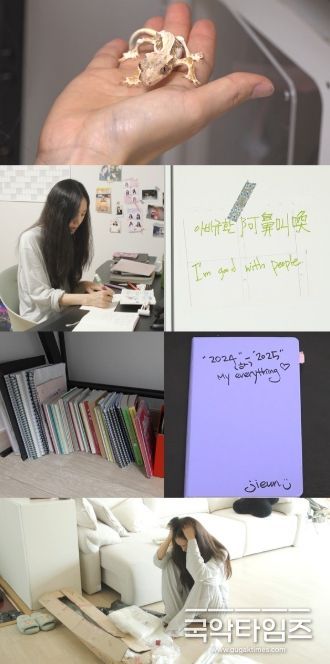 아비규환 阿鼻叫喚
I'm good with people
"2024" "2025"
My everything♡
jieun
국악타임즈
www.gugaktimes.com